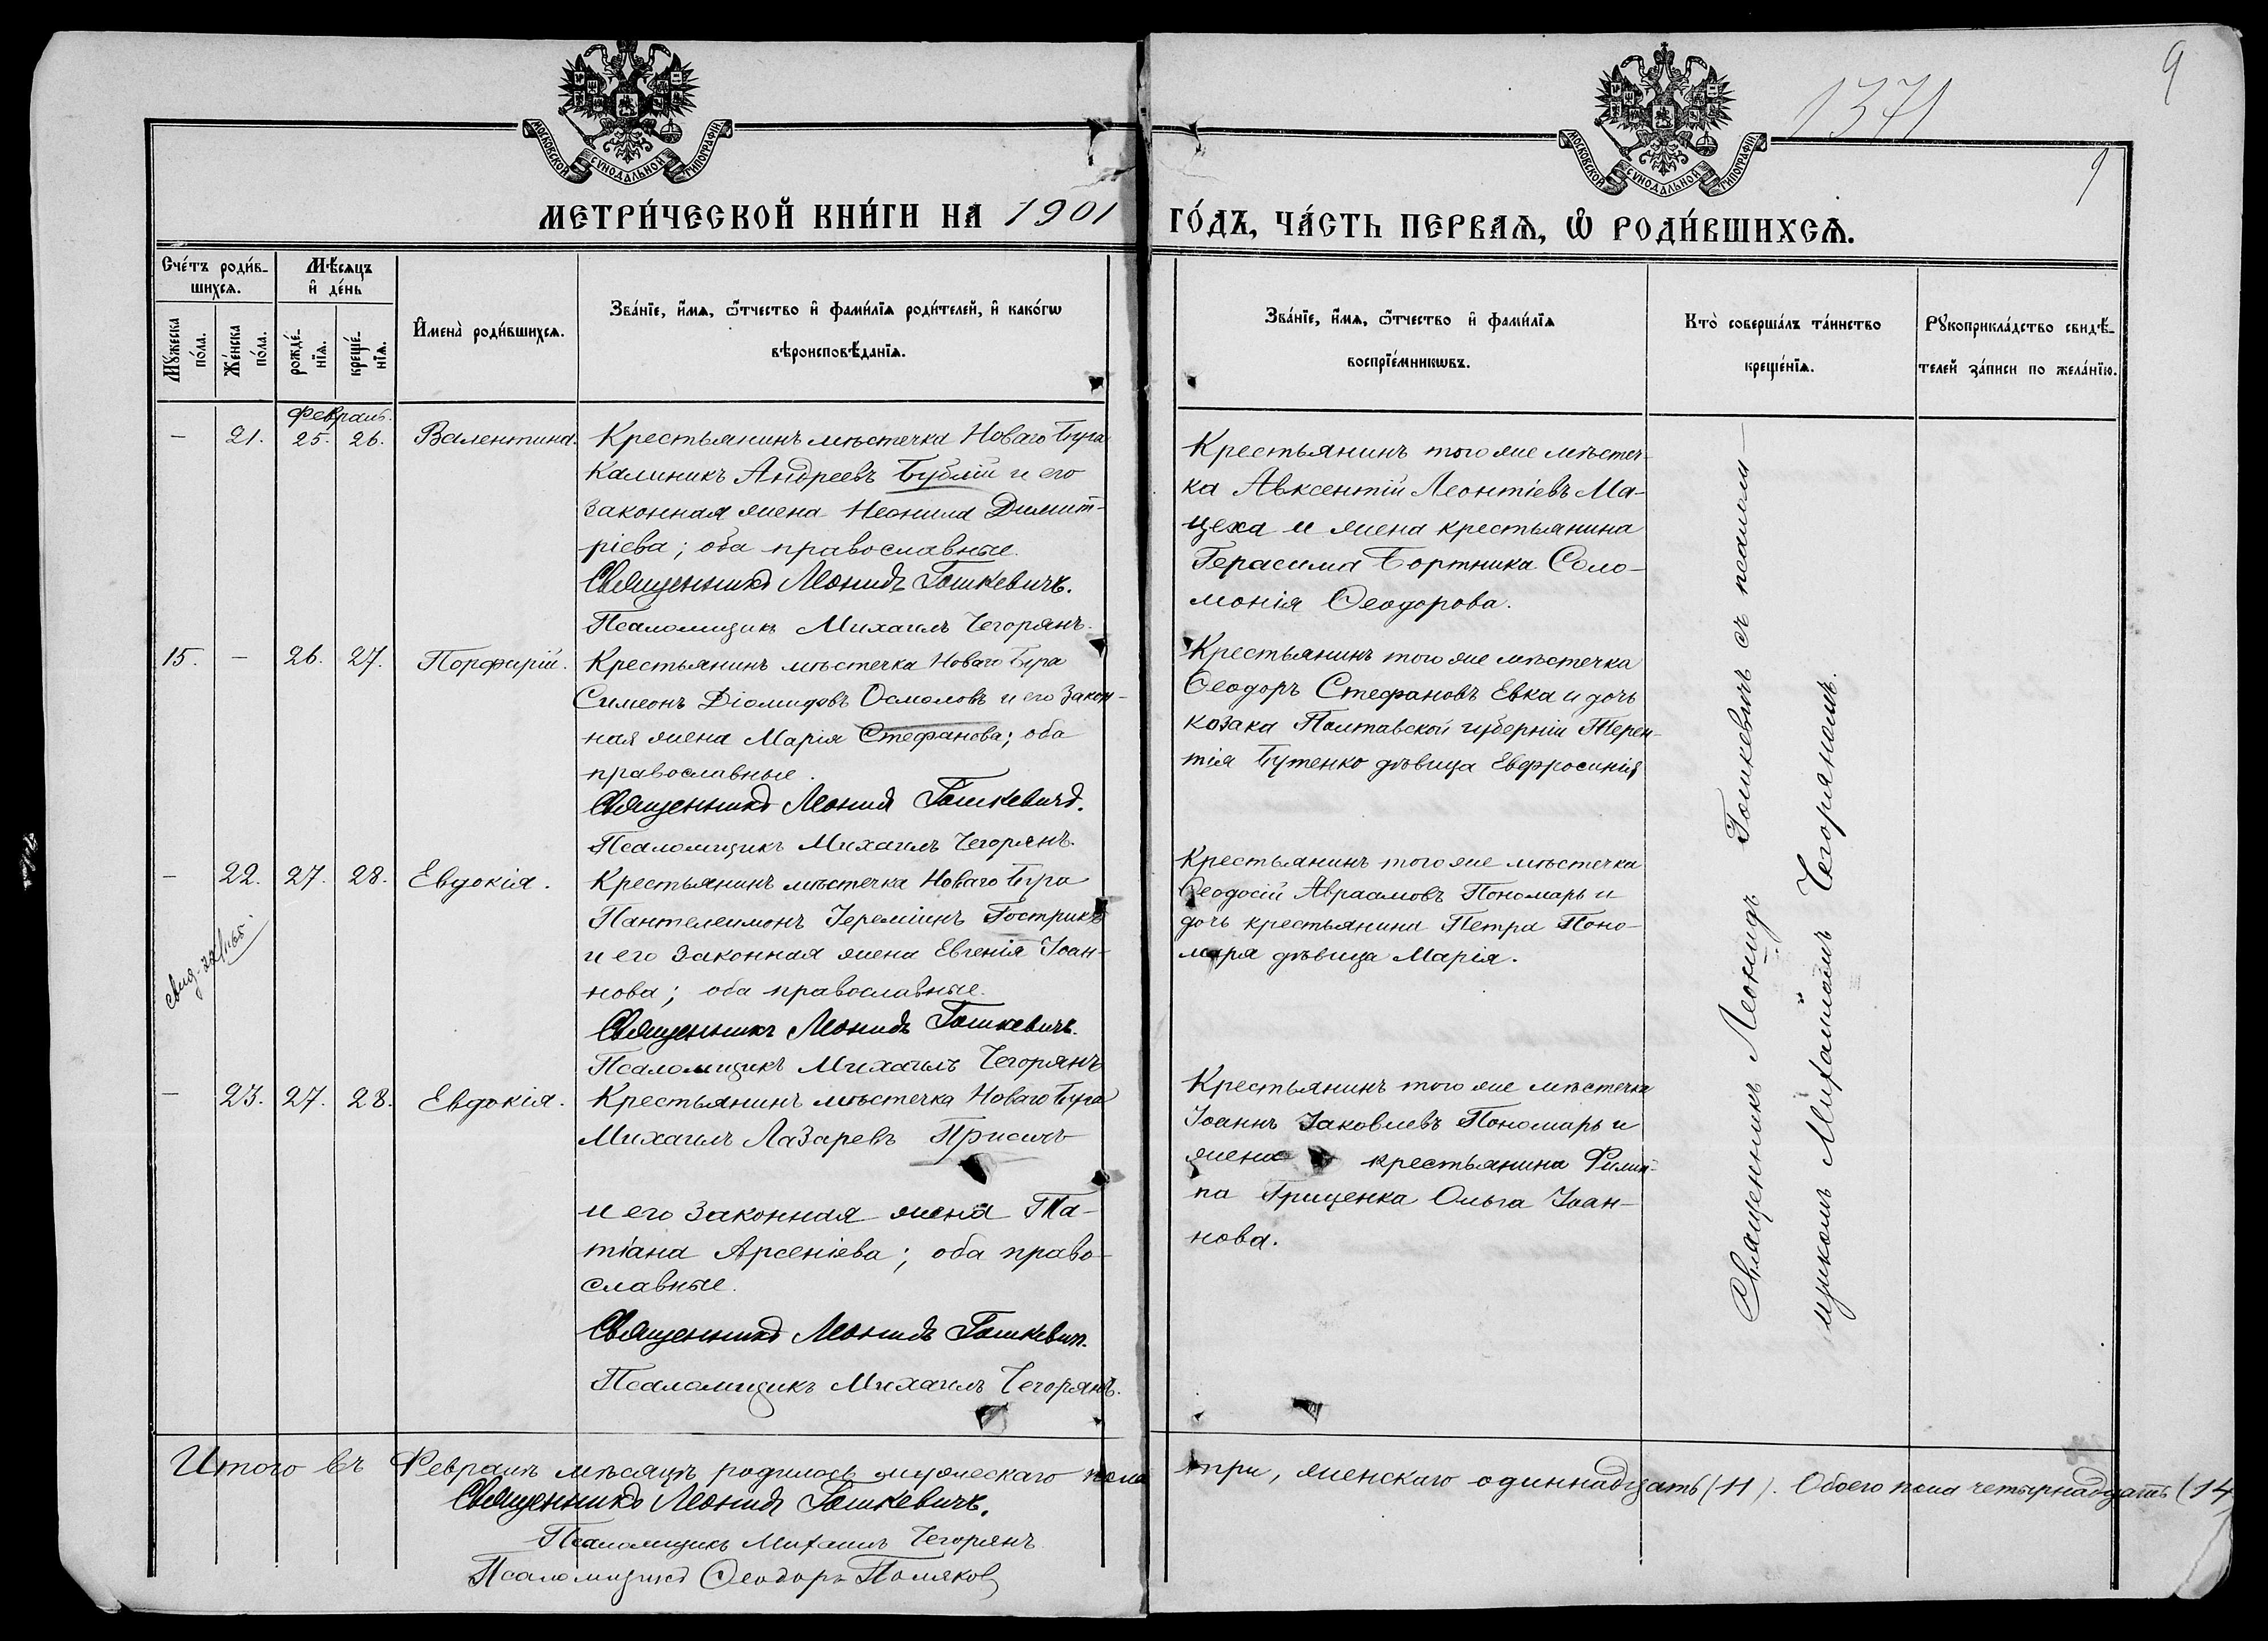 9
1371
9
МОСКОВСКОЙ СѴНОДАЛЬНОЙ ТИПОГРАФІИ
МОСКОВСКОЙ СѴНОДАЛЬНОЙ ТИПОГРАФІИ
МЕТРИ́ЧЕСКОЙ КНИ́ГИ НА 1901 ГО́ДЪ, ЧА́СТЬ ПЕРВАѦ, Ѡ РОДИ́ВШИХСѦ.
Сче́тъ роди́в-
шихсѧ.
Мѣ́сѧцъ
и де́нь
Мꙋжеска
по́ла.
Же́нска
по́ла.
рожде́-
нїѧ.
креще́-
нїѧ.
Имена̀ роди́вшихсѧ.
Зва́нїе, и́мѧ, ѻ́тчество и фами́лїѧ роди́телей, и како́гѡ
вѣроисповѣ́данїѧ.
Зва́нїе, и́мѧ, ѻ́тчество и фами́лїѧ
воспрїе́мникѡвъ.
Кто̀ соверша́лъ та́инство
креще́нїѧ.
Рꙋкоприкла́дство свидѣ́-
телей за́писи по жела́нїю.
Февраль.
— 21. 25. 26. Валентина.
Крестьянинъ мѣстечка Новаго Буга
Калиникъ Андреевъ Бублій и его
законная жена Неонила Димит-
ріева; оба православные.
Священникъ Леонидъ Гошкевичъ.
Псаломщикъ Михаилъ Чегорянъ.
Крестьянинъ того же мѣстеч-
ка Авксентій Леонтіевъ Ма-
цеха и жена крестьянина
Герасима Бортника Соло-
монія Ѳеодорова.
15. — 26. 27. Порфирій.
Крестьянинъ мѣстечка Новаго Буга
Симеонъ Діомидовъ Осмоловъ и его закон-
ная жена Марія Стефанова; оба
православные.
Священникъ Леонидъ Гошкевичъ.
Псаломщикъ Михаилъ Чегорянъ.
Крестьянинъ того же мѣстечка
Ѳеодоръ Стефановъ Евка и дочь
козака Полтавской губерніи Терен-
тія Бутенко дѣвица Евфросинія
— 22. 27. 28. Евдокія.
Крестьянинъ мѣстечка Новаго Буга
Пантелеимонъ Іереміинъ Гострикъ
и его законная жена Евгенія Іоан-
нова; оба православные.
Священникъ Леонидъ Гошкевичъ.
Псаломщикъ Михаилъ Чегорянъ
Крестьянинъ того же мѣстечка
Ѳеодосій Авраамовъ Пономарь и
дочь крестьянина Петра Поно-
маря дѣвица Марія.
— 23. 27. 28. Евдокія.
Крестьянинъ мѣстечка Новаго Буга
Михаилъ Лазаревъ Присичъ
и его законная жена Та-
тіана Арсеніева; оба право-
славные.
Священникъ Леонидъ Гошкевичъ.
Псаломщикъ Михаилъ Чегорянъ.
Крестьянинъ того же мѣстечка
Іоаннъ Іаковлевъ Пономарь и
жена крестьянина Филип-
па Гриценка Ольга Іоан-
нова.
Священникъ Леонидъ Гошкевичъ съ псалом-
щикомъ Михаиломъ Чегоряномъ.
Итого въ Февралѣ мѣсяцѣ родилось мужескаго пола три, женскаго одиннадцать (11). Обоего пола четырнадцать (14
Священникъ Леонидъ Гошкевичъ.
Псаломщикъ Михаилъ Чегорянъ
Псаломщикъ Ѳеодоръ Поляковъ